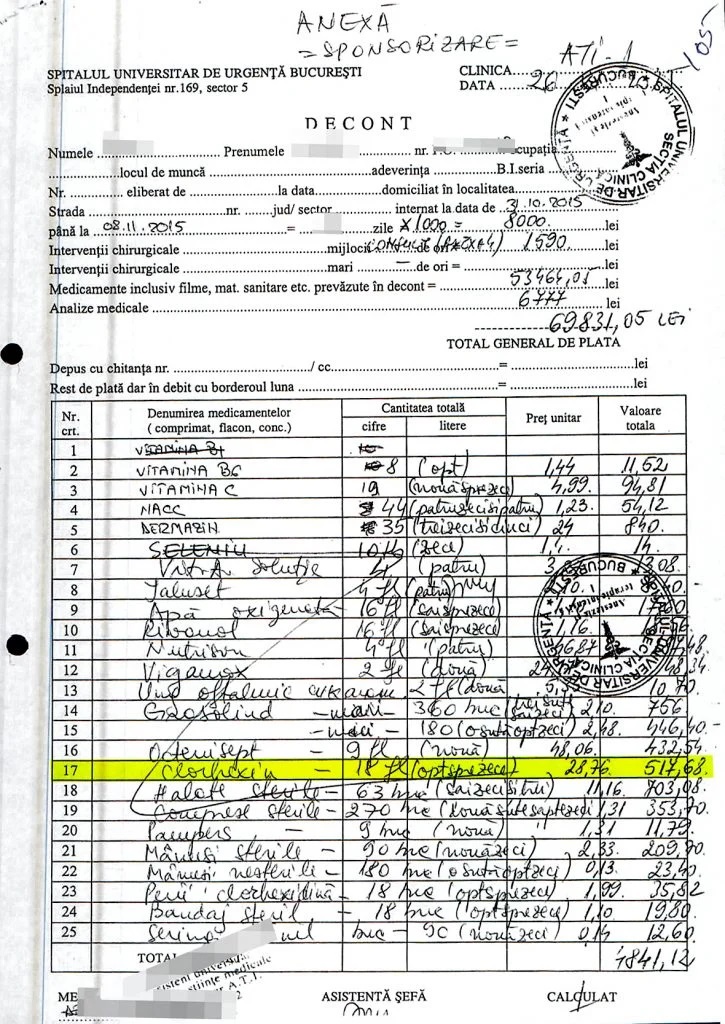 ANEXĂ
= SPONSORIZARE =
SPITALUL UNIVERSITAR DE URGENȚĂ BUCUREȘTI
Splaiul Independenței nr.169, sector 5
CLINICA ATI - 1
DATA 26
DECONT
Numele Prenumele nr. Ocupația
locul de muncă adeverința B.I.seria
Nr. eliberat de la data domiciliat în localitatea
Strada nr. jud/ sector internat la data de 31.10.2015
până la 08.11.2015 = zile x 1000 = 8000 lei
Intervenții chirurgicale mijlocii de ori = 1590 lei
Intervenții chirurgicale mari — de ori = lei
Medicamente inclusiv filme, mat. sanitare etc. prevăzute în decont = 53464,05 lei
Analize medicale 6777 lei
69831,05 LEI
TOTAL GENERAL DE PLATA
Depus cu chitanța nr. / cc. = lei
Rest de plată dar în debit cu borderoul luna = lei
Nr. crt. Denumirea medicamentelor ( comprimat, flacon, conc.) Cantitatea totală cifre litere Preț unitar Valoare totala
1 VITAMINA B1 10
2 VITAMINA B6 8 (opt) 1,44 11,52
3 VITAMINA C 19 (nouăsprezece) 4,99 94,81
4 NACC 44 (patruzecisipatru) 1,23 54,12
5 DERMAZIN 35 (treizecisicinci) 24 840
6 SELENIU 10 fl (zece) 1,4 14
7 soluție 4 (patru) 3,08
8 4 fl (patru)
9 Apă oxigenată 16 fl (saisprezece)
10 Rivanol 16 fl (saisprezece) 1,16
11 Nutrison 4 fl (patru)
12 Vigamox 2 fl (două)
13 Ung oftalmic 2 fl (două 10,70
14 Grasolind — mari — 360 buc 2,10 756
15 — mici — 180 (osutăoptzeci) 2,48 446,40
16 Octenisept — 9 fl (nouă) 48,06 432,54
17 Clorhexin — 18 fl (optsprezece) 28,76 517,68
18 Halate sterile — 63 buc (saizecisitrei) 11,16 703,08
19 Comprese sterile — 270 buc (douăsutesaptezeci) 1,31 353,70
20 Pampers — 9 buc (nouă) 1,31 11,79
21 Mănuși sterile — 90 buc (nouăzeci) 2,33 209,70
22 Mănuși nesterile — 180 buc (osutăoptzeci) 0,13 23,40
23 Perii clorhexidină — 18 buc (optsprezece) 1,99 35,82
24 Bandaj steril — 18 buc (optsprezece) 1,10 19,80
25 buc — 90 (nouăzeci) 0,14 12,60
TOTAL 4841,12
științe medicale
A.T.I.
ASISTENTĂ ȘEFĂ
CALCULAT